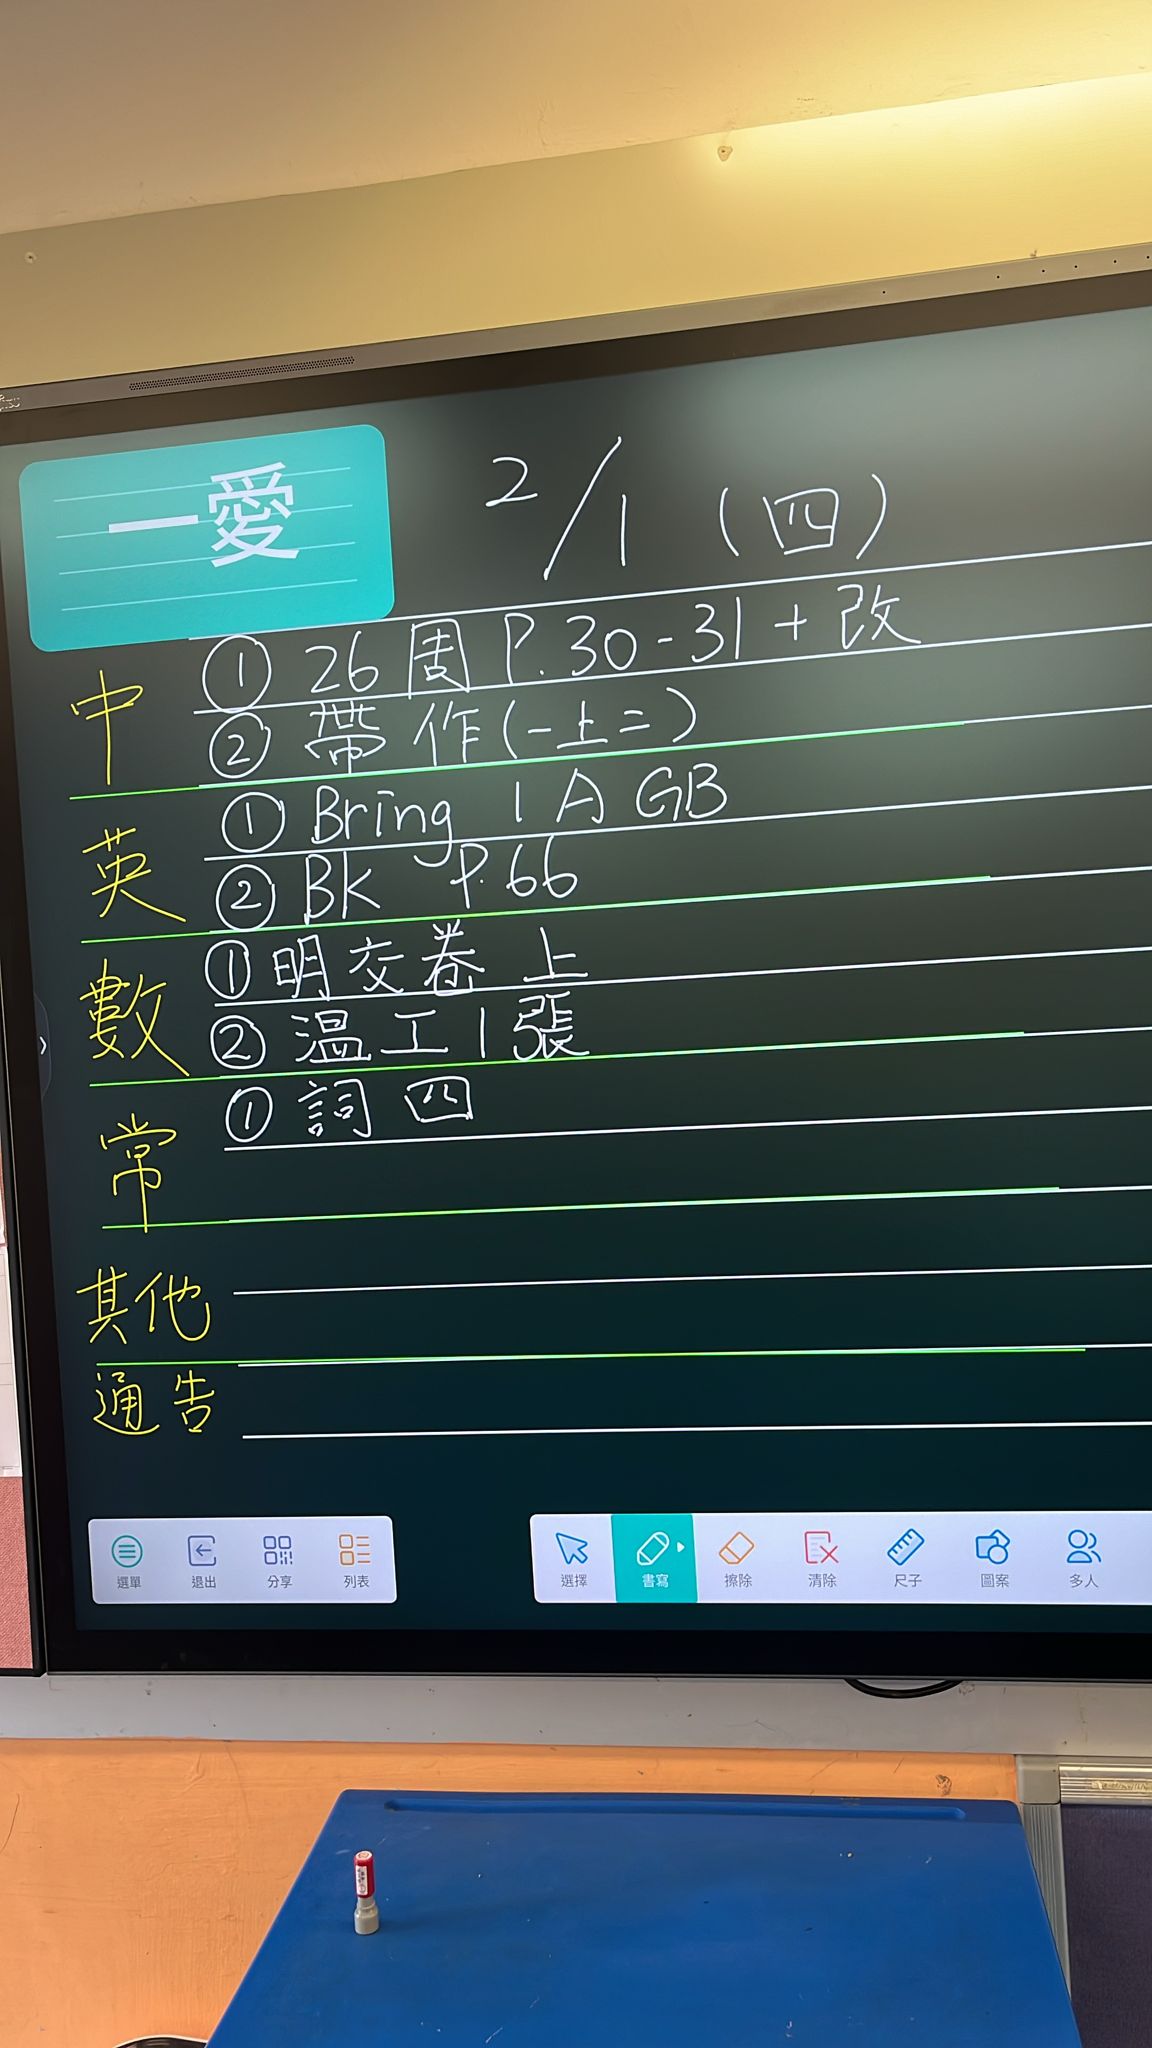 一愛
2/1 (四)
中
① 26周 P.30-31 + 改
② 帶作(一上二)
英
① Bring 1A GB
② BK P.66
數
① 明交卷上
② 溫工1張
常
① 詞四
其他
通告
選單 退出 分享 列表 選擇 書寫 擦除 清除 尺子 圖案 多人